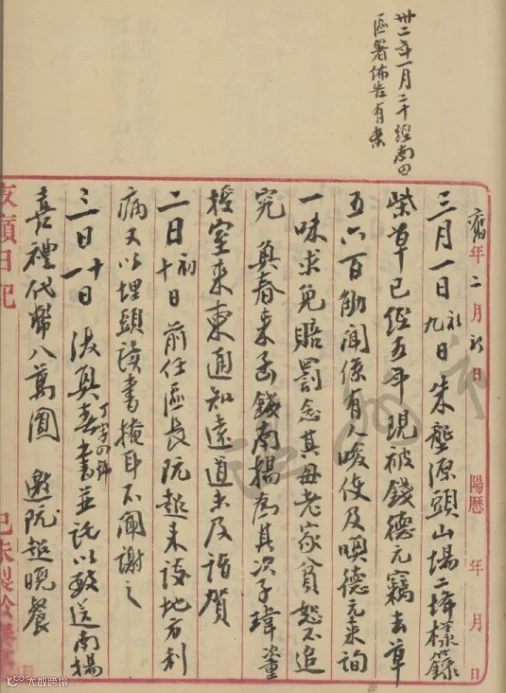 卅二年一月二十經南田
區署佈告有案
舊年二月初日 陽曆 年 月 日
三月一日初九日 朱壑源頭山場二垟樣籙
柴草已經五年現被錢德元竊去草
五六百觔聞係有人唆使及喚德元來詢
一味求免賠罰念其母老家貧恕不追
究 奠春來函錢南揚為其次子瑋
授室來柬通知遠道未及話賀
二日初十日 前任區長阮超來談地方利
病又以埋頭讀書掩耳不聞謝之
三日十一日 復奠春書並託以致送南揚
喜禮代幣八萬圓 邀阮超晚餐
日記
己未製於
大數跨境